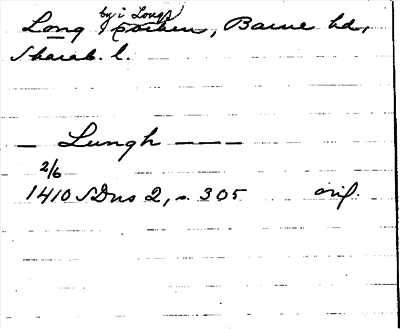 by i Longs
Long socken, Barne hd,
Skarab. l.
— Lungh — — —
2/6
1410 SDns 2, s. 305 orig.